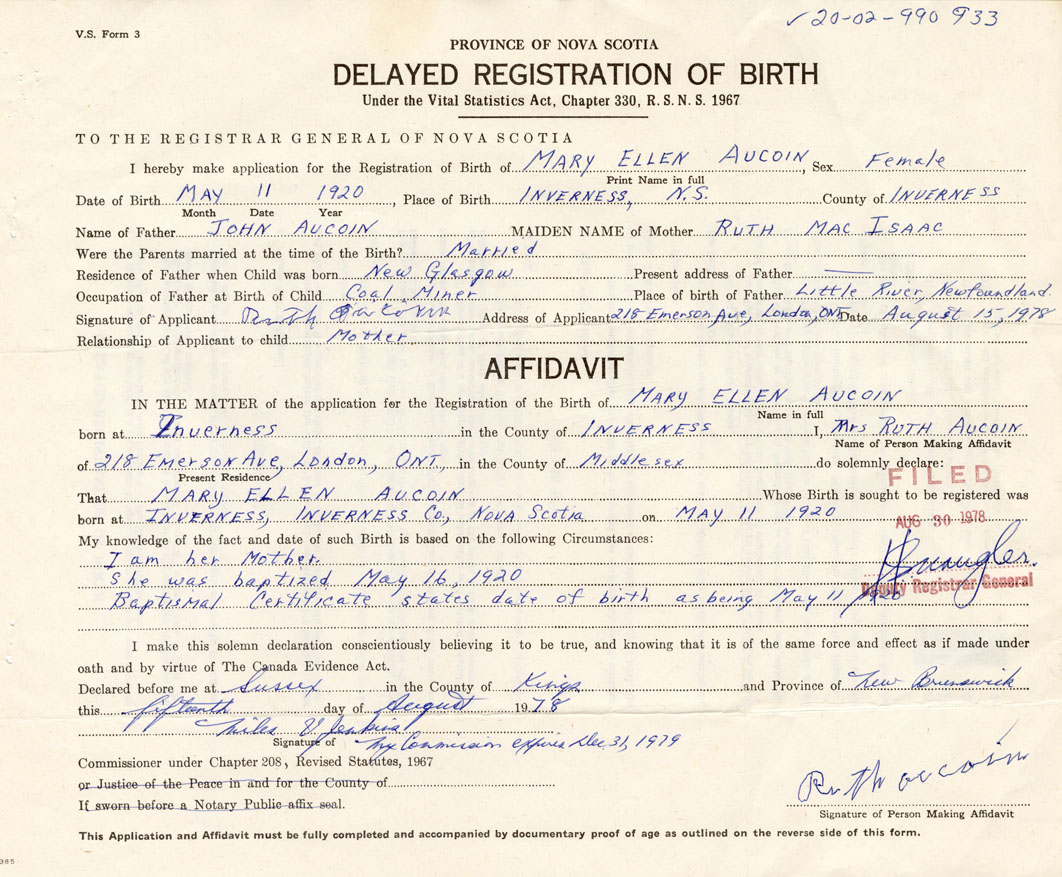 V.S. Form 3
✓20-02-990933
PROVINCE OF NOVA SCOTIA
DELAYED REGISTRATION OF BIRTH
Under the Vital Statistics Act, Chapter 330, R.S.N.S. 1967
TO THE REGISTRAR GENERAL OF NOVA SCOTIA
I hereby make application for the Registration of Birth of MARY ELLEN AUCOIN, Sex Female
Print Name in full
Date of Birth MAY 11 1920, Place of Birth INVERNESS, N.S. County of INVERNESS
Month Date Year
Name of Father JOHN AUCOIN MAIDEN NAME of Mother RUTH MAC ISAAC
Were the Parents married at the time of the Birth? Married
Residence of Father when Child was born New Glasgow Present address of Father —
Occupation of Father at Birth of Child Coal Miner Place of birth of Father Little River, Newfoundland.
Signature of Applicant Ruth Aucoin Address of Applicant 218 Emerson Ave, London, ONT Date August 15, 1978
Relationship of Applicant to child Mother
AFFIDAVIT
IN THE MATTER of the application for the Registration of the Birth of MARY ELLEN AUCOIN
Name in full
born at Inverness in the County of INVERNESS I, Mrs RUTH AUCOIN
Name of Person Making Affidavit
of 218 Emerson Ave, London, ONT. in the County of Middlesex do solemnly declare:
Present Residence
FILED
That MARY ELLEN AUCOIN Whose Birth is sought to be registered was
born at INVERNESS, INVERNESS Co., NOVA Scotia on MAY 11 1920
AUG 30 1978
My knowledge of the fact and date of such Birth is based on the following Circumstances:
I am her Mother.
She was baptized May 16, 1920
Baptismal Certificate states date of birth as being May 11 1920
Deputy Registrar General
I make this solemn declaration conscientiously believing it to be true, and knowing that it is of the same force and effect as if made under
oath and by virtue of The Canada Evidence Act.
Declared before me at Sussex in the County of Kings and Province of New Brunswick
this fifteenth day of August 1978
Miles V Jenkins
Signature of My Commission expires Dec 31, 1979
Commissioner under Chapter 208, Revised Statutes, 1967
or Justice of the Peace in and for the County of
If sworn before a Notary Public affix seal.
Ruth Aucoin
Signature of Person Making Affidavit
This Application and Affidavit must be fully completed and accompanied by documentary proof of age as outlined on the reverse side of this form.
385